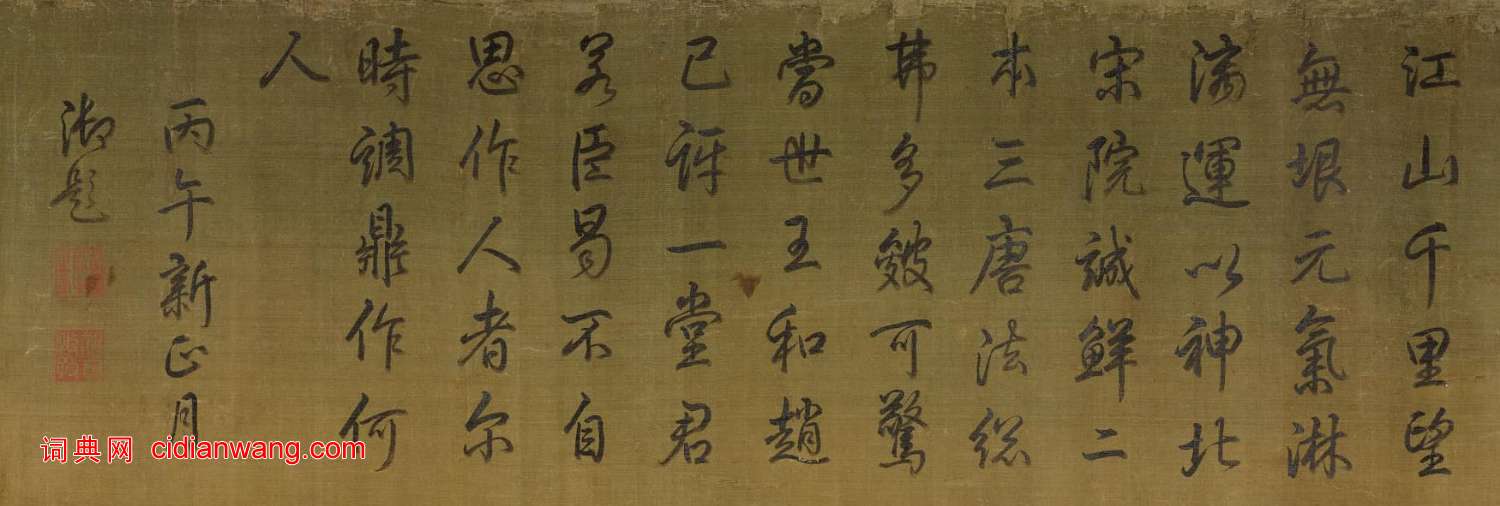 江山千里望
無垠元氣淋
漓運以神北
宋院誠鮮二
本三唐法総
弗多皴可驚
當世王和趙
已訝一堂君
若臣曷不自
思作人者尔
時調鼎作何
人
丙午新正月
御題
词典网 cidianwang.com